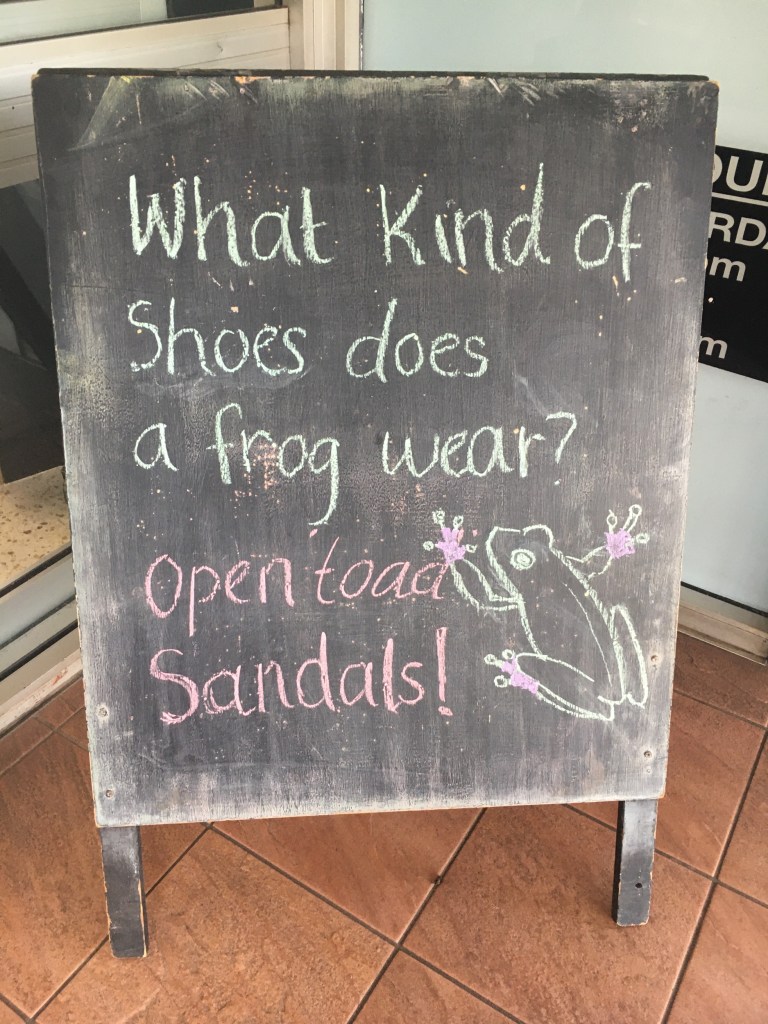 What Kind of
Shoes does
a frog wear?
Open 'toad'
Sandals!